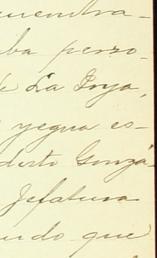 cuentra-
ba perso-
de La Joya,
yegua es-
berto Gonzá-
Jefatura
ndo que